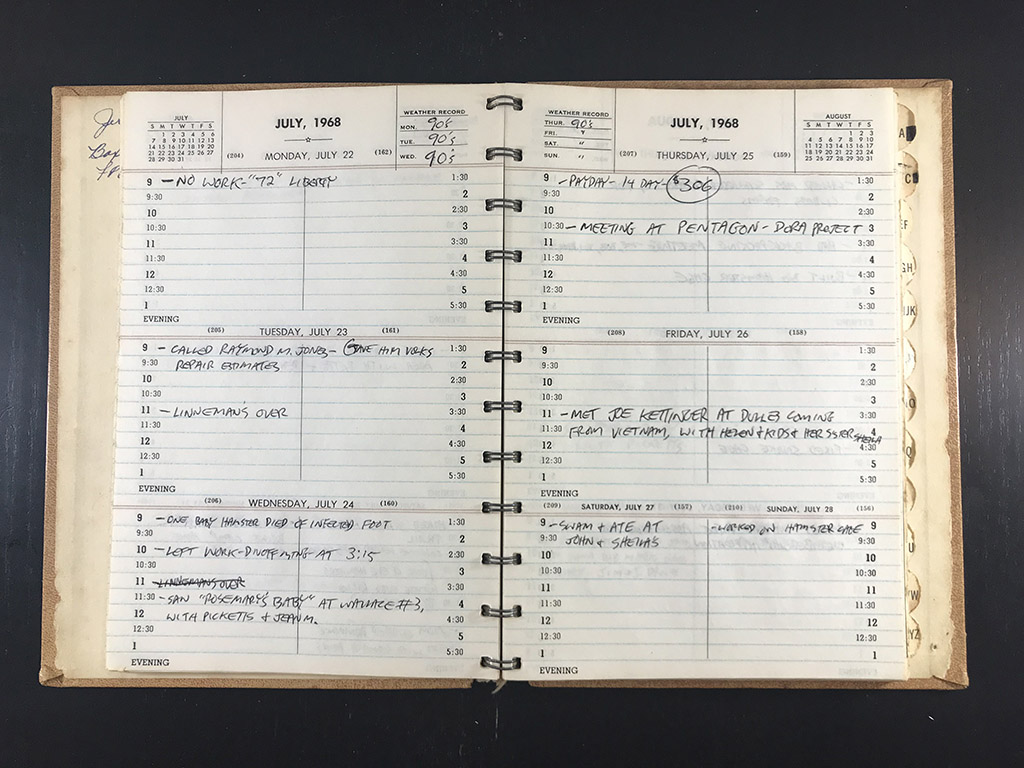 JULY
S M T W T F S
1 2 3 4 5 6
7 8 9 10 11 12 13
14 15 16 17 18 19 20
21 22 23 24 25 26 27
28 29 30 31
JULY, 1968
(204) MONDAY, JULY 22 (162)
WEATHER RECORD
MON. 90's
TUE. 90's
WED. 90's
9 - NO WORK - "72" LIBERTY 1:30
9:30 2
10 2:30
10:30 3
11 3:30
11:30 4
12 4:30
12:30 5
1 5:30
EVENING
(205) TUESDAY, JULY 23 (161)
9 - CALLED RAYMOND M. JONES - GAVE HIM VOLKS 1:30
9:30 REPAIR ESTIMATES 2
10 2:30
10:30 3
11 - LINNEMAN'S OVER 3:30
11:30 4
12 4:30
12:30 5
1 5:30
EVENING
(206) WEDNESDAY, JULY 24 (160)
9 - ONE BABY HAMSTER DIED OF INFECTED FOOT 1:30
9:30 2
10 - LEFT WORK - AT 3:15 2:30
10:30 3
11 - LINNEMANS OVER 3:30
11:30 - SAW "ROSEMARY'S BABY" AT WALLACE #3, 4
12 WITH PICKETTS & JEAN M. 4:30
12:30 5
1 5:30
EVENING
WEATHER RECORD
THUR. 90's
FRI. "
SAT. "
SUN. "
JULY, 1968
(207) THURSDAY, JULY 25 (159)
AUGUST
S M T W T F S
1 2 3
4 5 6 7 8 9 10
11 12 13 14 15 16 17
18 19 20 21 22 23 24
25 26 27 28 29 30 31
9 - PAYDAY - 14 DAY - $306 1:30
9:30 2
10 2:30
10:30 - MEETING AT PENTAGON - DORA PROJECT 3
11 3:30
11:30 4
12 4:30
12:30 5
1 5:30
EVENING
(208) FRIDAY, JULY 26 (158)
9 1:30
9:30 2
10 2:30
10:30 3
11 - MET JOE KETTINGER AT DULLES COMING 3:30
11:30 FROM VIETNAM, WITH HELEN & KIDS & HER SISTER SHEILA 4
12 4:30
12:30 5
1 5:30
EVENING
(209) SATURDAY, JULY 27 (157) (210) SUNDAY, JULY 28 (156)
9 - SWAM & ATE AT - WORKED ON HAMSTER CAGE 9
9:30 JOHN & SHEILA'S 9:30
10 10
10:30 10:30
11 11
11:30 11:30
12 12
12:30 12:30
1 1
EVENING EVENING
A
C
EF
GH
IJK
O
Q
U
W
YZ